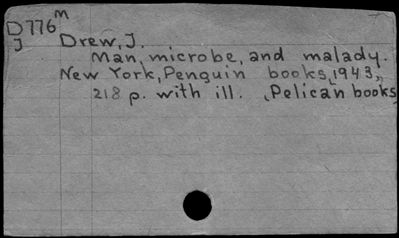 D776 M
J Drew, J.
Man, microbe, and malady.
New York, Penguin books, 1943,
218 p. with ill. (Pelican books